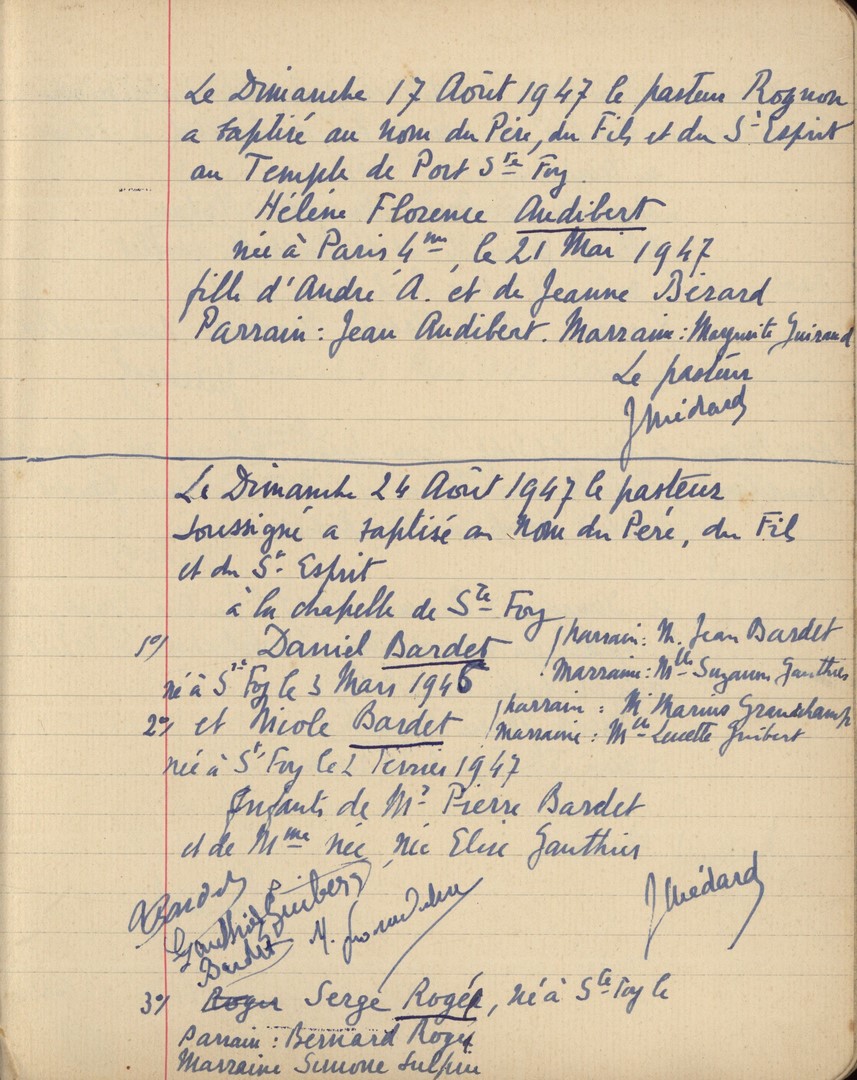 Le Dimanche 17 Août 1947 le pasteur Rognon
a baptisé au nom du Père, du Fils et du St Esprit
au Temple de Port Ste Foy.
Hélène Florence Audibert
née à Paris 4me, le 21 Mai 1947
fille d'André A. et de Jeanne Bérard
Parrain : Jean Audibert. Marraine : Marguerite Guiraud
Le pasteur
J Médard
Le Dimanche 24 Août 1947 le pasteur
soussigné a baptisé au Nom du Père, du Fils
et du St Esprit
à la chapelle de Ste Foy
1°/ Daniel Bardet
parrain : M. Jean Bardet
Marraine : Mlle Suzanne Gauthier
né à Ste Foy le 3 Mars 1946
2°/ et Nicole Bardet
parrain : M Marius Grandchamp
Marraine : Mlle Lucette Guibert
née à Ste Foy le 2 Février 1947
Enfants de Mr Pierre Bardet
et de Mme née, née Elise Gauthier
Bardet
Gauthier Guibert
Bardet M.
J Médard
3°/ Roger Serge Roger, né à Ste Foy le
Parrain : Bernard Roger
Marraine Simone